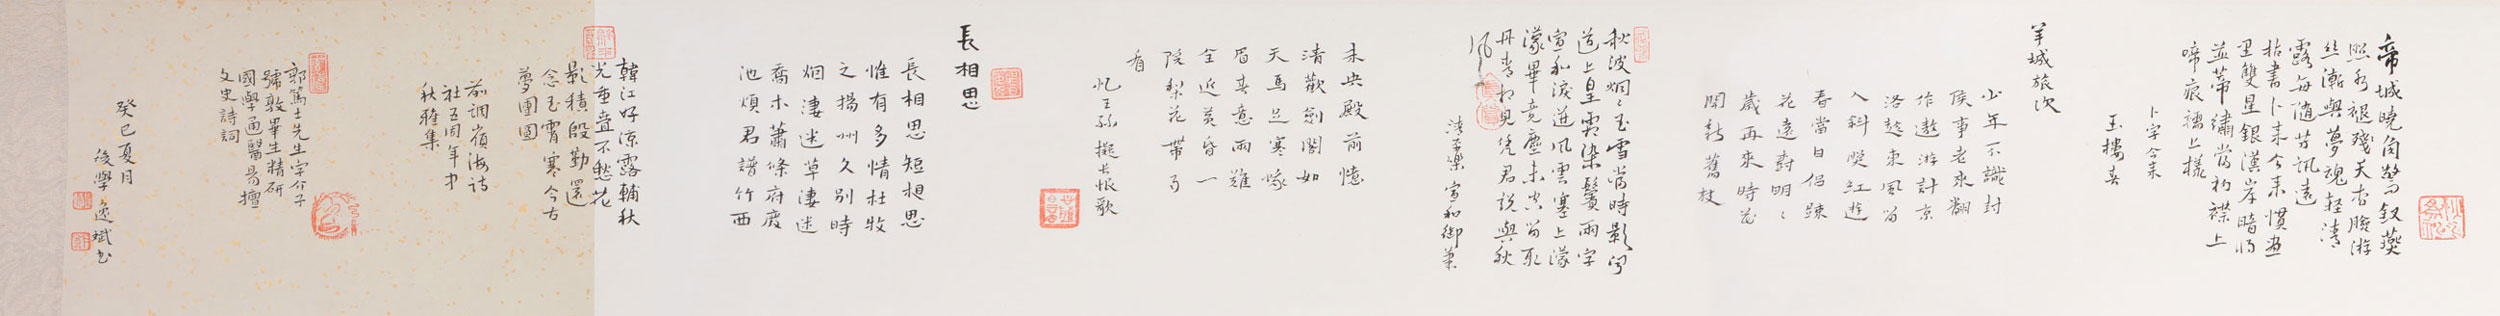 帝城曉角驚回釵燕
照水褪殘天杏臉游
絲漸與夢魂輕清
露每隨芳訊遠
枯書卜來今來慣畫
里雙星銀漢岸暗
並蒂繡當初襟上
啼痕襦上樣
卜字令來
玉樓春
羊城旅次
少年不識封
侯事老來翻
作遨游計京
洛趁東風
入斜 紅遊
春當日侶疎
花遠對明〻
歲再來時花
開新舊枝
秋波烟〻玉雪當時影
道上皇霜染鬢兩字
宣和淚迸風雲塞上濛
濛畢竟塵未
丹青相見凭君說與秋
風
清平樂 宣和御筆
未央殿前憶
清歡劍閣如
天馬足寒
眉其意兩難
全近黃昏一
院梨花帶雨
看
憶王孫擬長恨歌
長相思
長相思短相思
惟有多情杜牧
之揚州久別時
烟淒迷草淒迷
喬木蕭條府廢
池煩君譜竹西
韓江好涼露輔秋
光重疊不愁花
影積殷勤還
念玉霄寒今古
夢團圓
前調嶺海詩
社五周年中
秋雅集
郭篤士先生字介子
號敦畢生精研
國學通醫易擅
文史詩詞
癸巳夏月
後學逸斌書